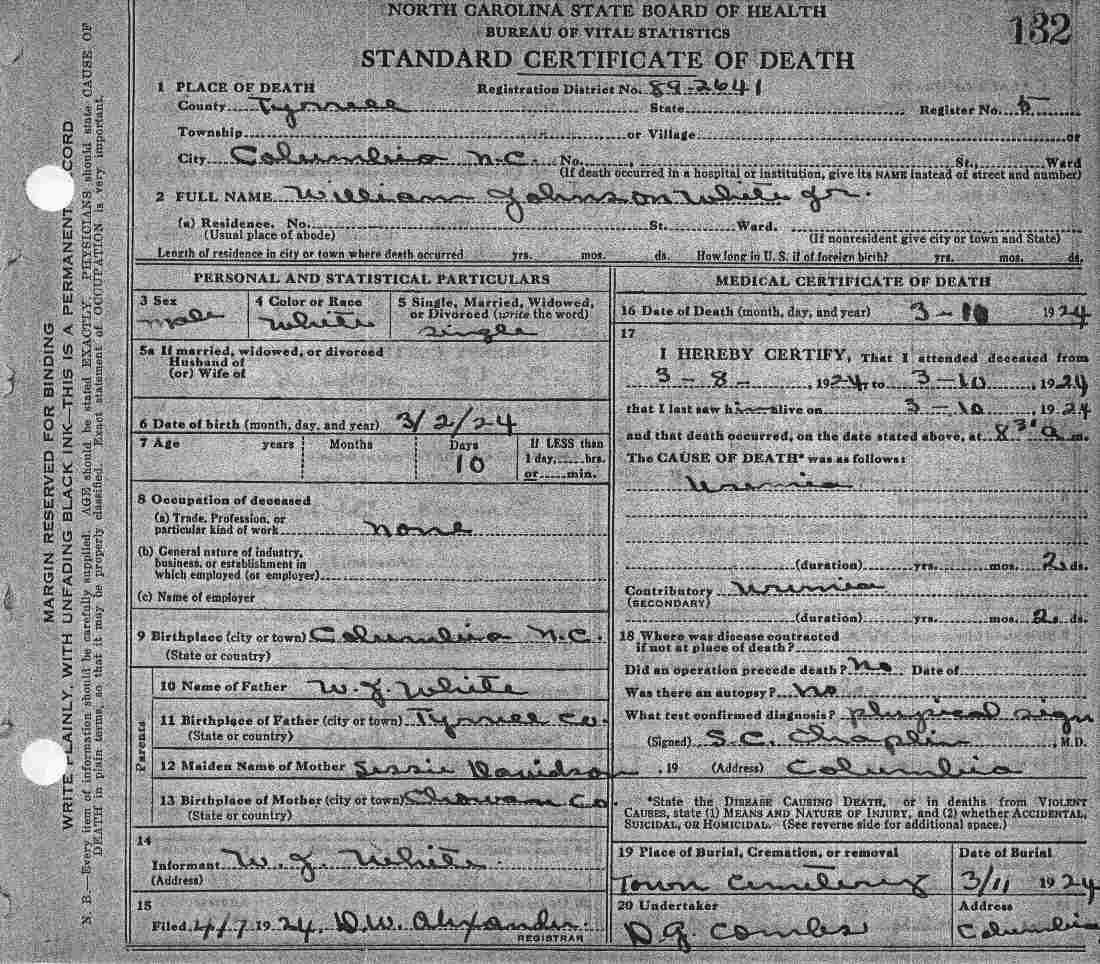 NORTH CAROLINA STATE BOARD OF HEALTH
BUREAU OF VITAL STATISTICS
132
STANDARD CERTIFICATE OF DEATH
1 PLACE OF DEATH Registration District No. 89-2641
County Tyrrell State Register No. 5
Township or Village or
City Columbia N.C. No. St., Ward
(If death occurred in a hospital or institution, give its NAME instead of street and number)
2 FULL NAME William Johnson White Jr.
(a) Residence. No. St. Ward.
(Usual place of abode) (If nonresident give city or town and State)
Length of residence in city or town where death occurred yrs. mos. ds. How long in U. S. if of foreign birth? yrs. mos. ds.
PERSONAL AND STATISTICAL PARTICULARS
3 Sex
Male
4 Color or Race
White
5 Single, Married, Widowed,
or Divorced (write the word)
Single
5a If married, widowed, or divorced
Husband of
(or) Wife of
6 Date of birth (month, day, and year) 3/2/24
7 Age years Months Days If LESS than
10 1 day, hrs.
or min.
8 Occupation of deceased
(a) Trade, Profession, or
particular kind of work none
(b) General nature of industry,
business, or establishment in
which employed (or employer)
(c) Name of employer
9 Birthplace (city or town) Columbia N.C.
(State or country)
Parents
10 Name of Father W. J. White
11 Birthplace of Father (city or town) Tyrrell Co.
(State or country)
12 Maiden Name of Mother Davidson
13 Birthplace of Mother (city or town) Chowan Co.
(State or country)
14
Informant W. J. White
(Address)
15
Filed 4/7 1924. D.W. Alexander
REGISTRAR
MEDICAL CERTIFICATE OF DEATH
16 Date of Death (month, day, and year) 3-10 1924
17
I HEREBY CERTIFY, That I attended deceased from
3-8-, 1924, to 3-10, 1924
that I last saw him alive on 3-10, 1924
and that death occurred, on the date stated above, at 8 30 a m.
The CAUSE OF DEATH* was as follows:
Uremia
(duration) yrs. mos. 2 ds.
Contributory Uremia
(SECONDARY)
(duration) yrs. mos. 2 ds.
18 Where was disease contracted
if not at place of death?
Did an operation precede death? No Date of
Was there an autopsy? No
What test confirmed diagnosis? physical sign
(Signed) S.C. Chaplin, M.D.
, 19 (Address) Columbia
*State the DISEASE CAUSING DEATH, or in deaths from VIOLENT
CAUSES, state (1) MEANS AND NATURE OF INJURY, and (2) whether ACCIDENTAL,
SUICIDAL, OR HOMICIDAL. (See reverse side for additional space.)
19 Place of Burial, Cremation, or removal Date of Burial
Town Cemetery 3/11 1924
20 Undertaker Address
Combs Columbia
MARGIN RESERVED FOR BINDING
WRITE PLAINLY, WITH UNFADING BLACK INK—THIS IS A PERMANENT CORD
N. B.—Every item of information should be carefully supplied. AGE should be stated EXACTLY. PHYSICIANS should state CAUSE OF
DEATH in plain terms, so that it may be properly classified. Exact statement of OCCUPATION is very important.